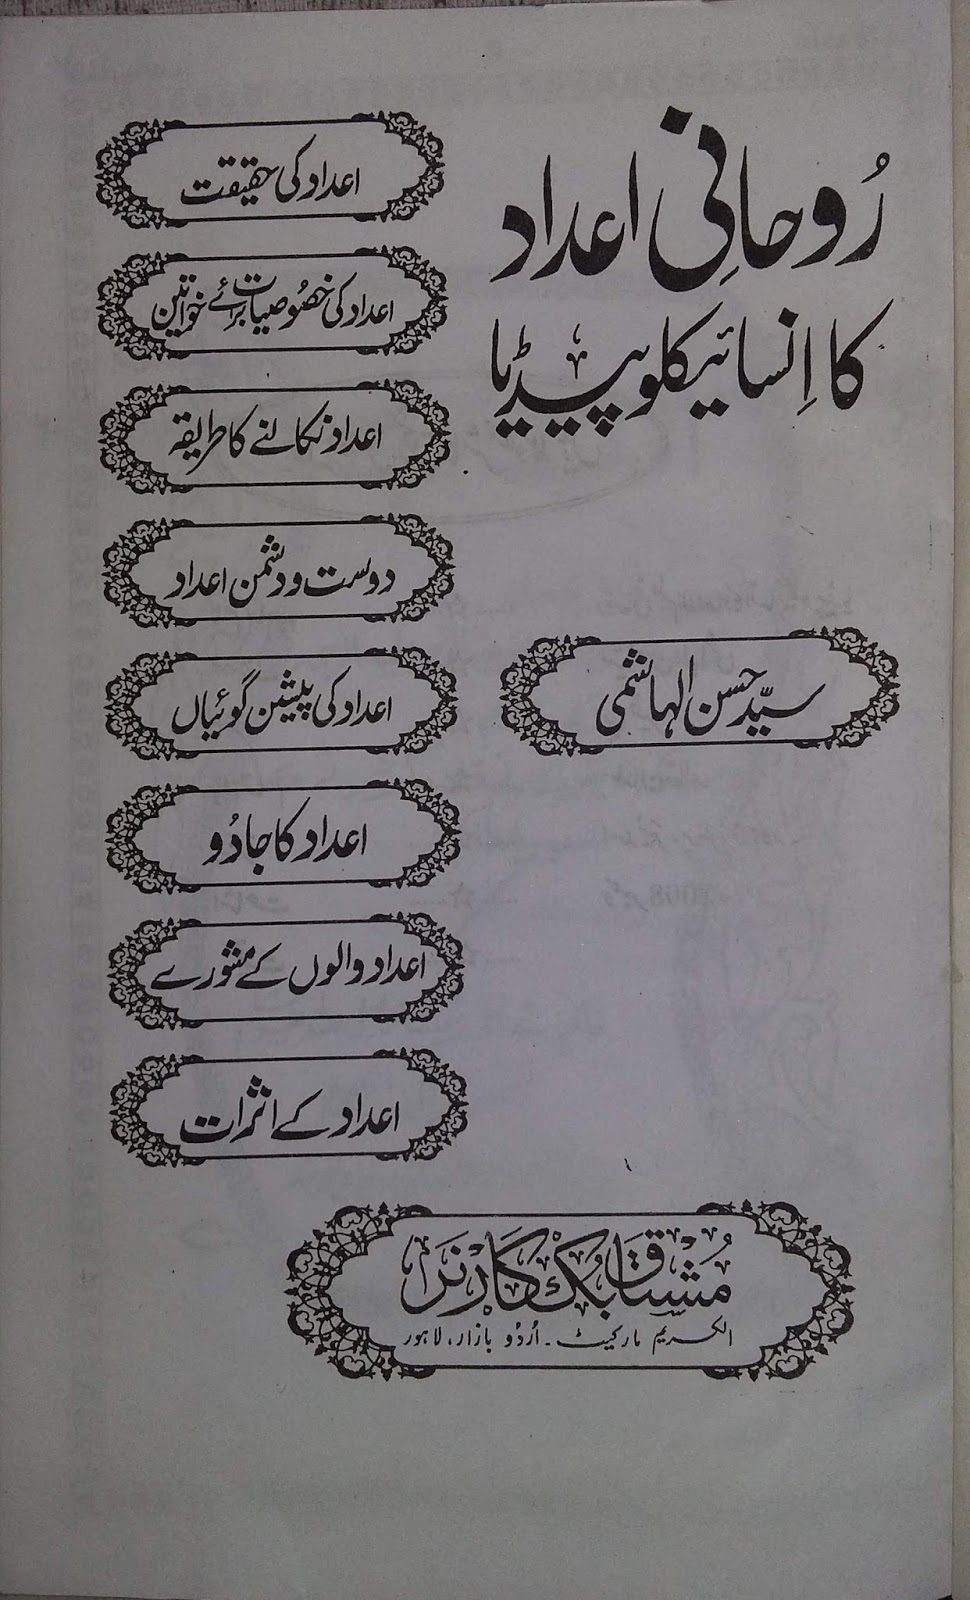 رُوحانی اعداد
کا اِنسائیکلوپیڈیا
سیّد حسن الہاشمی
اعداد کی حقیقت
اعداد کی خصُوصیات برائے خواتین
اعداد نکالنے کا طریقہ
دوست و دشمن اعداد
اعداد کی پیشین گوئیاں
اعداد کا جادُو
اعداد والوں کے مشورے
اعداد کے اثرات
مُشتاق بُک کارنر
الکریم مارکیٹ ۔ اُردُو بازار، لاہور